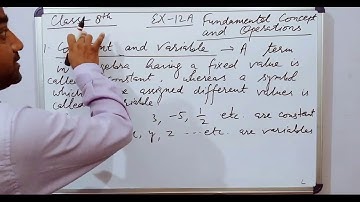 Class 8th EX-12A Fundamental Concept
and Operations
1. and Variable → A term
in algebra having a fixed value is
called constant, whereas a symbol
which assigned different values is
called variable
3, -5, 1/2 etc. are constant
x, y, z ---etc. are variables